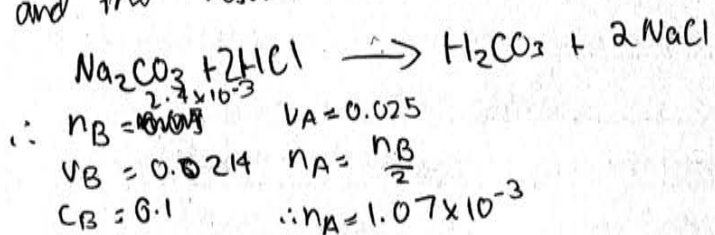 and the
Na₂CO₃ + 2HCl ⟶ H₂CO₃ + 2NaCl
2.4×10⁻³
∴ nB = VA = 0.025
VB = 0.0214 nA = nB/2
CB = 0.1 ∴ nA = 1.07×10⁻³